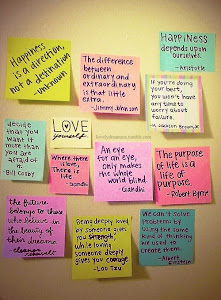 Happiness
is a direction,
not a destination
-unknown
The difference
between ordinary
and extraordinary
is that little
extra.
-Jimmy Johnson
HAPPINESS
depends upon
ourselves.
-Aristotle
If you're doing
your best,
you won't have
any time to
worry about
failure.
H. Jackson Brown
decide
that you
want it
more than
you are
afraid of
it.
-Bill Cosby
LOVE
yourself
Where there
is love,
There is
life
-Gandhi
An eye
for an
eye,
only makes
the whole
world blind
-Gandhi
The purpose
of life is a
life of
purpose.
-Robert Byrne
the future
belongs to those
who believe in
the beauty of
their dreams
eleanor
roosevelt
Being deeply loved
by someone gives
you strength,
while loving
someone deeply
gives you courage
-Lao Tzu
We can't solve
problems by
using the same
kind of thinking
we used to
create them.
-Albert
Einstein